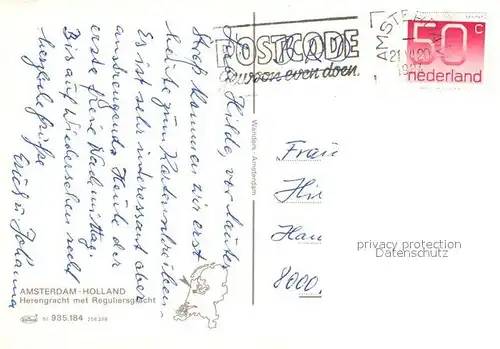 Liebe Hilde, vor lauter
Streß kommen wir erst
heute zum Kartenschreiben.
Es ist sehr interessant aber
anstrengend. Heute der
erste freie Nachmittag.
Bis auf Wiedersehen recht
herzliche Grüße
Erich u. Johanna
POSTCODE
gewoon even doen.
AMSTERDAM
21.VI
50 c
nederland
Frau
Hil
Han
8000
privacy protection
Datenschutz
Wandem - Amsterdam
AMSTERDAM-HOLLAND
Herengracht met Reguliersgracht
935.184